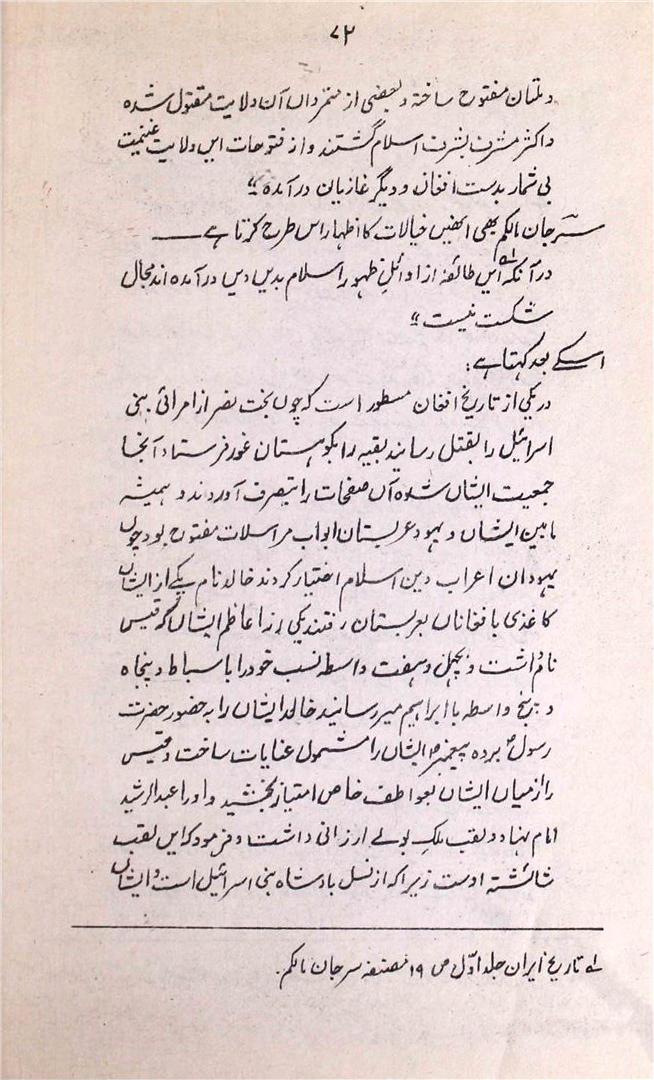 ۷۲
و ملتان مفتوح ساختہ و بعضی از متمرداں آن ولایت مقتول شدہ
و اکثر مشرف بشرف اسلام گشتند و از فتوحات ایں ولایت غنیمت
بی شمار بدست افغان و دیگر غازیان در آمدہ"
سرجان مالکم بھی انھیں خیالات کا اظہار اس طرح کرتا ہے ـــــ
در آنکہ ایں طائفہ از اوائل ظہور اسلام بدیں دیں در آمدہ اند مجال
شکست نیست"
اسکے بعد کہتا ہے:
در یکی از تاریخ افغان مسطور است کہ چوں بخت نصر از امرائی بنی
اسرائیل را بقتل رسانید بقیہ را بکوہستان غور فرستاد آنجا
جمعیت ایشاں شدہ آں صفحات را بتصرف آوردند و ہمیشہ
مابین ایشاں و یہود عربستان ابواب مراسلات مفتوح بود چوں
یہودان اعراب دین اسلام اختیار کردند خالد نام یکے از ایشاں
کاغذی بافغاناں بعربستان رفتند یکی از اعاظم ایشاں کہ قیس
نام داشت و بچہل و ہفت واسطہ نسب خود را با سباط و پنجاہ
و پنج واسطہ با ابراہیم میرسانید خالد ایشاں را بہ حضور حضرت
رسولؐ بردہ پیغمبرؐ ایشاں را مشمول عنایات ساخت و قیس
را از میاں ایشاں بعواطف خاص امتیاز بخشید و او را عبدالرشید
نام نہاد و لقب ملک بوے ارزانی داشت و فرمود کہ ایں لقب
شائستہ اوست زیرا کہ از نسل بادشاہ بنی اسرائیل است و ایشاں
لے تاریخ ایران جلد اوّل ص ۱۹ مصنفہ سرجان مالکم.